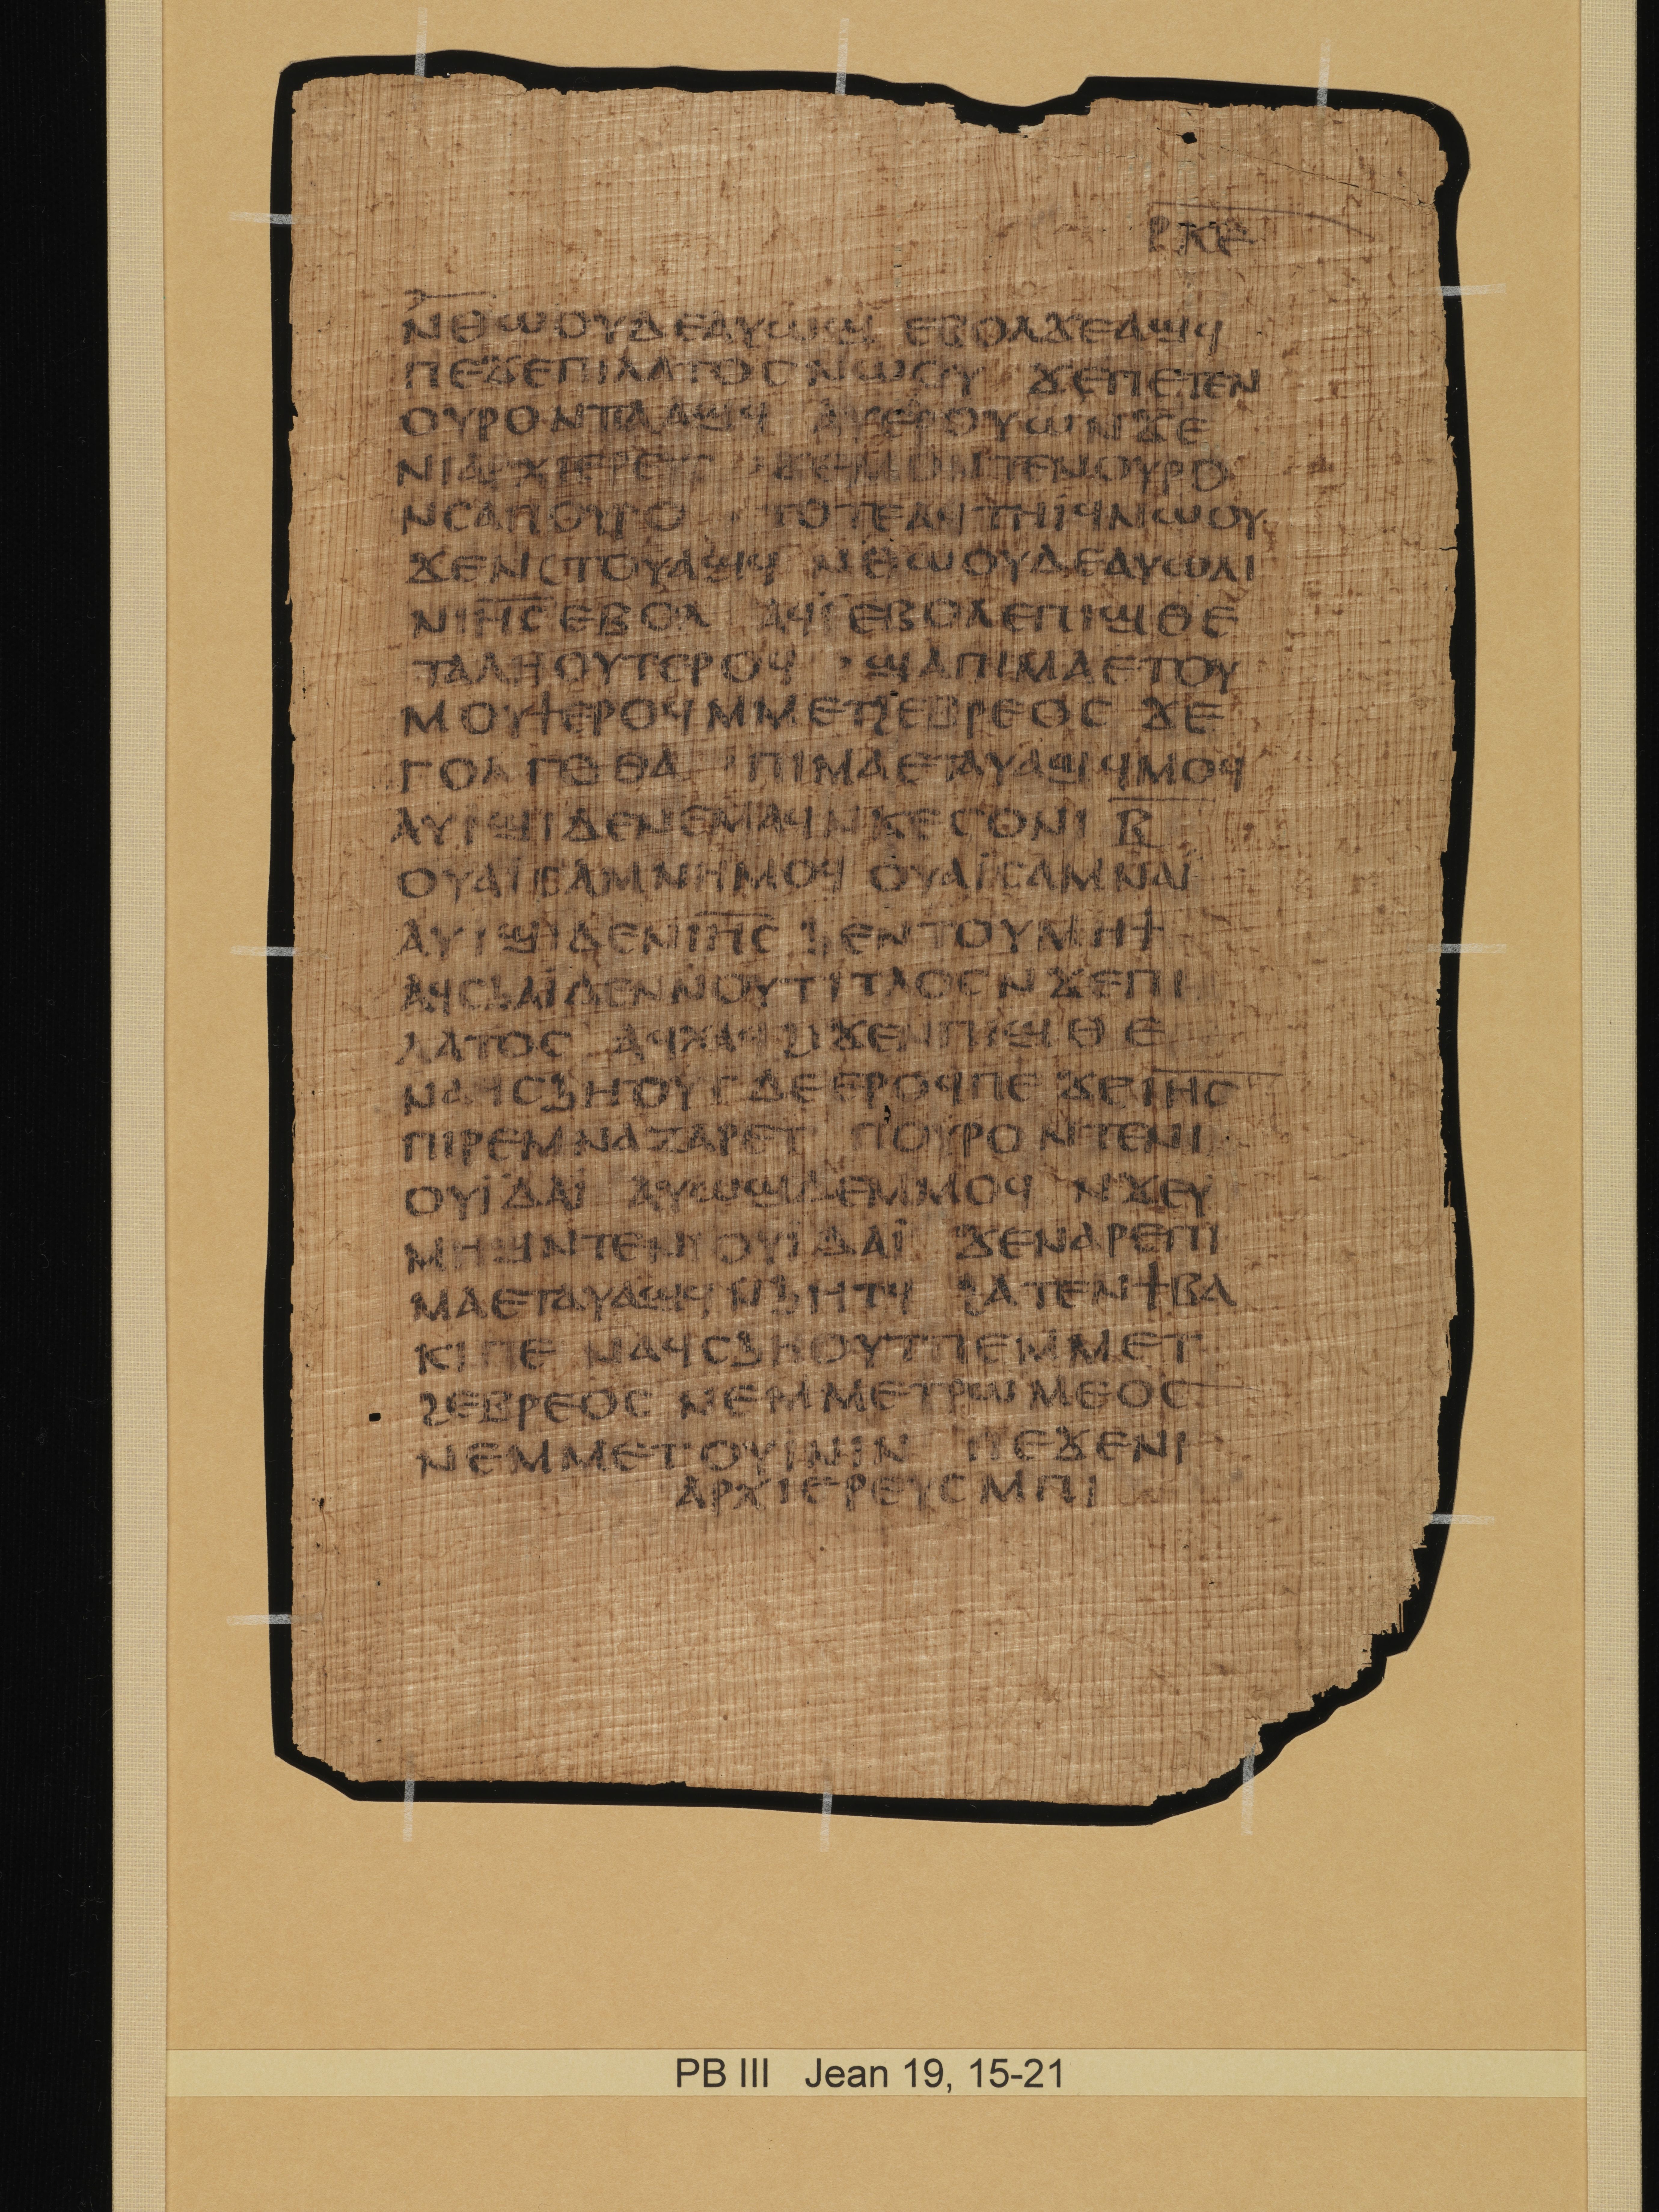 ⲣⲕⲉ
ⲛⲑⲱⲟⲩⲇⲉⲁⲩⲱϣ ⲉⲃⲟⲗϫⲉⲁϣϥ
ⲡⲉϫⲉⲡⲓⲗⲁⲧⲟⲥⲛⲱⲟⲩ ϫⲉⲡⲉⲧⲉⲛ
ⲟⲩⲣⲟⲛⲧⲁⲁϣϥ ⲁⲩⲉⲣⲟⲩⲱⲛϫⲉ
ⲛⲓⲁⲣⲭⲓⲉⲣⲉⲩⲥ ϫⲉⲙⲙⲟⲛⲧⲉⲛⲟⲩⲣⲟ
ⲛⲥⲁⲡⲟⲩⲣⲟ ⲧⲟⲧⲉⲁϥⲧⲏⲓϥⲛⲱⲟⲩ
ϫⲉⲛⲥⲧⲟⲩⲁϣϥ ⲛⲑⲱⲟⲩⲇⲉⲁⲩⲱⲗⲓ
ⲛⲓⲏ̅ⲥ̅ⲉⲃⲟⲗ ⲁϥⲓ̈ⲉⲃⲟⲗⲉⲡⲓϣⲑⲉ
ⲧⲁⲗⲏⲟⲩⲧⲉⲣⲟϥ ϣⲁⲡⲓⲙⲁⲉⲧⲟⲩ
ⲙⲟⲩϯⲉⲣⲟϥⲙⲙⲉⲧϩⲉⲃⲣⲉⲟⲥ ϫⲉ
ⲅⲟⲗⲅⲟⲑⲁ ⲡⲓⲙⲁⲉⲧⲁⲩⲁϣⲓϥⲙⲟϥ
ⲁⲩⲓϣⲓⲇⲉⲛⲉⲙⲁϥⲛⲕⲉⲥⲟⲛⲓ ⲃ̅
ⲟⲩⲁⲓ̈ⲥⲁⲙⲛⲏⲙⲟϥ ⲟⲩⲁⲓ̈ⲥⲁⲙⲛⲁⲓ̈
ⲁⲩⲓϣⲓⲇⲉⲛⲓⲏ̅ⲥ̅ ϧⲉⲛⲧⲟⲩⲙⲏϯ
ⲁϥⲥϧⲁⲓ̈ⲇⲉⲛⲛⲟⲩⲧⲓⲧⲗⲟⲥⲛϫⲉⲡⲓ
ⲗⲁⲧⲟⲥ ⲁϥⲭⲁϥϩⲓϫⲉⲛⲡⲓϣⲑⲉ
ⲛⲁϥⲥϧⲏⲟⲩⲧⲇⲉⲉⲣⲟϥⲡⲉ ϫⲉⲓ̅ⲏ̅ⲥ̅
ⲡⲓⲣⲉⲙⲛⲁⲍⲁⲣⲉⲧ ⲡⲟⲩⲣⲟ ⲛⲧⲉⲛⲓ
ⲟⲩⲓ̈ⲇⲁⲓ̈ ⲁⲩⲱϣⲇⲉⲙⲙⲟϥ ⲛϫⲉⲩ
ⲙⲏϣⲛⲧⲉⲛⲓⲟⲩⲓ̈ⲇⲁⲓ̈ ϫⲉⲛⲁⲣⲉⲡⲓ
ⲙⲁⲉⲧⲁⲩⲁϣϥⲛϧⲏⲧϥ ϩⲁⲧⲉⲛϯⲃⲁ
ⲕⲓⲡⲉ ⲛⲁϥⲥϧⲏⲟⲩⲧⲡⲉⲙⲙⲉⲧ
ϩⲉⲃⲣⲉⲟⲥ ⲛⲉⲙⲙⲉⲧⲣⲱⲙⲉⲟⲥ
ⲛⲉⲙⲙⲉⲧⲟⲩⲓⲛⲓⲛ ⲡⲉϫⲉⲛⲓ
ⲁⲣⲭⲓⲉⲣⲉⲩⲥⲙⲡⲓ
PB III Jean 19, 15-21